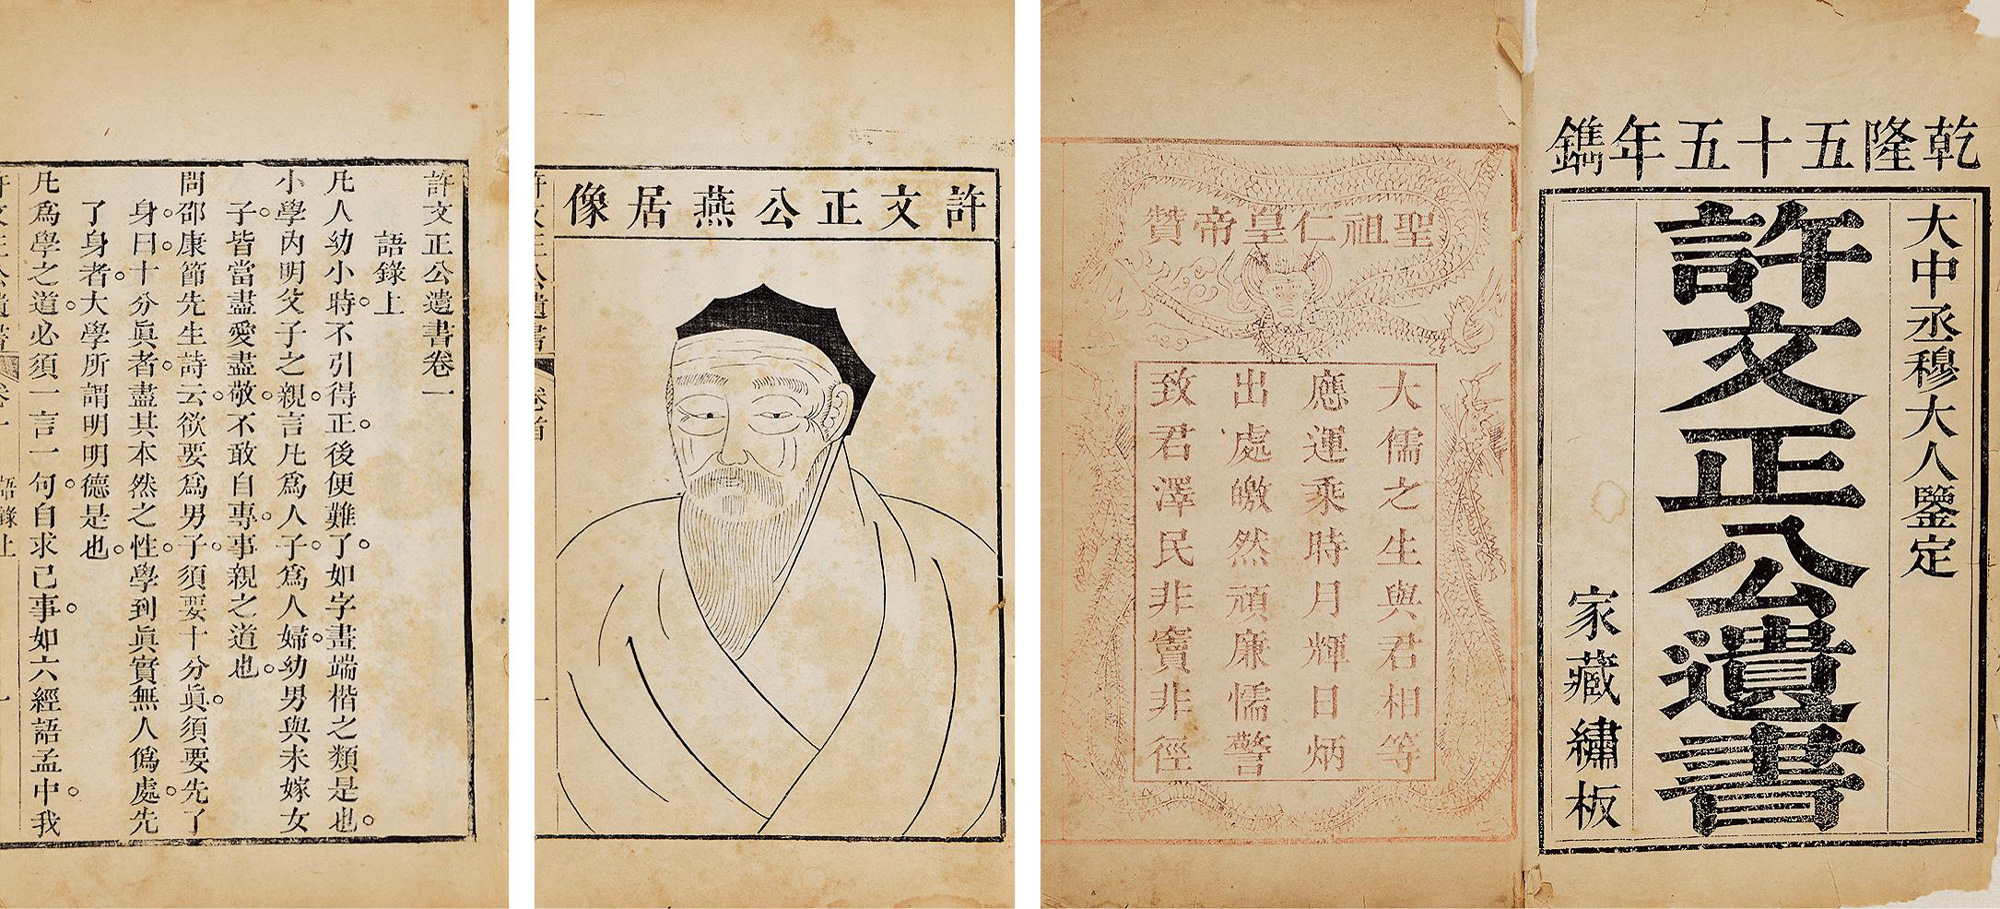 乾隆五十五年鐫
大中丞穆大人鑒定
許文正公遺書
家藏繡板
聖祖仁皇帝贊
大儒之生與君相等
應運乘時月輝日炳
出處皦然頑廉懦警
致君澤民非竇非徑
許文正公燕居像
許文正公遺書
卷首
一
許文正公遺書卷一
語錄上
凡人幼小時不引得正後便難了如字畫端楷之類是也
小學內明父子之親言凡爲人子爲人婦幼男與未嫁女
子皆當盡愛盡敬不敢自專事親之道也
問邵康節先生詩云欲要爲男子須要十分眞須要先了
身曰十分眞者盡其本然之性學到眞實無人僞處先
了身者大學所謂明明德是也
凡爲學之道必須一言一句自求己事如六經語孟中我
許文正公遺書
卷一
語錄上
一